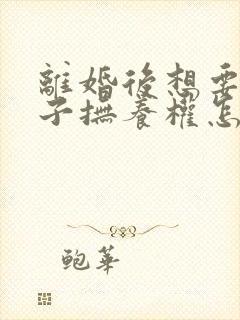 離婚後想要
子撫養權怎
鲍華